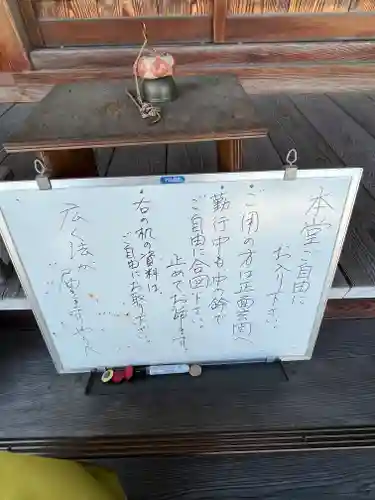 本堂ご自由に
お入り下さい
・ご用の方は正面玄関へ
・勤行中も中の鈴で
ご自由に合図下さい
止めてお詣ります
・右の机の資料は、
ご自由にお取り下さい。
広く法が
届きますように